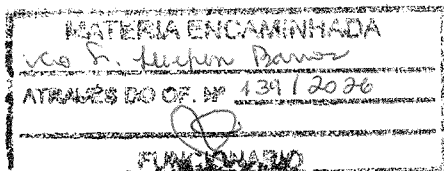 MATERIA ENCAMINHADA
Barros
ATRAVÉS DO OF. Nº 139/2026
FUNCIONARIO